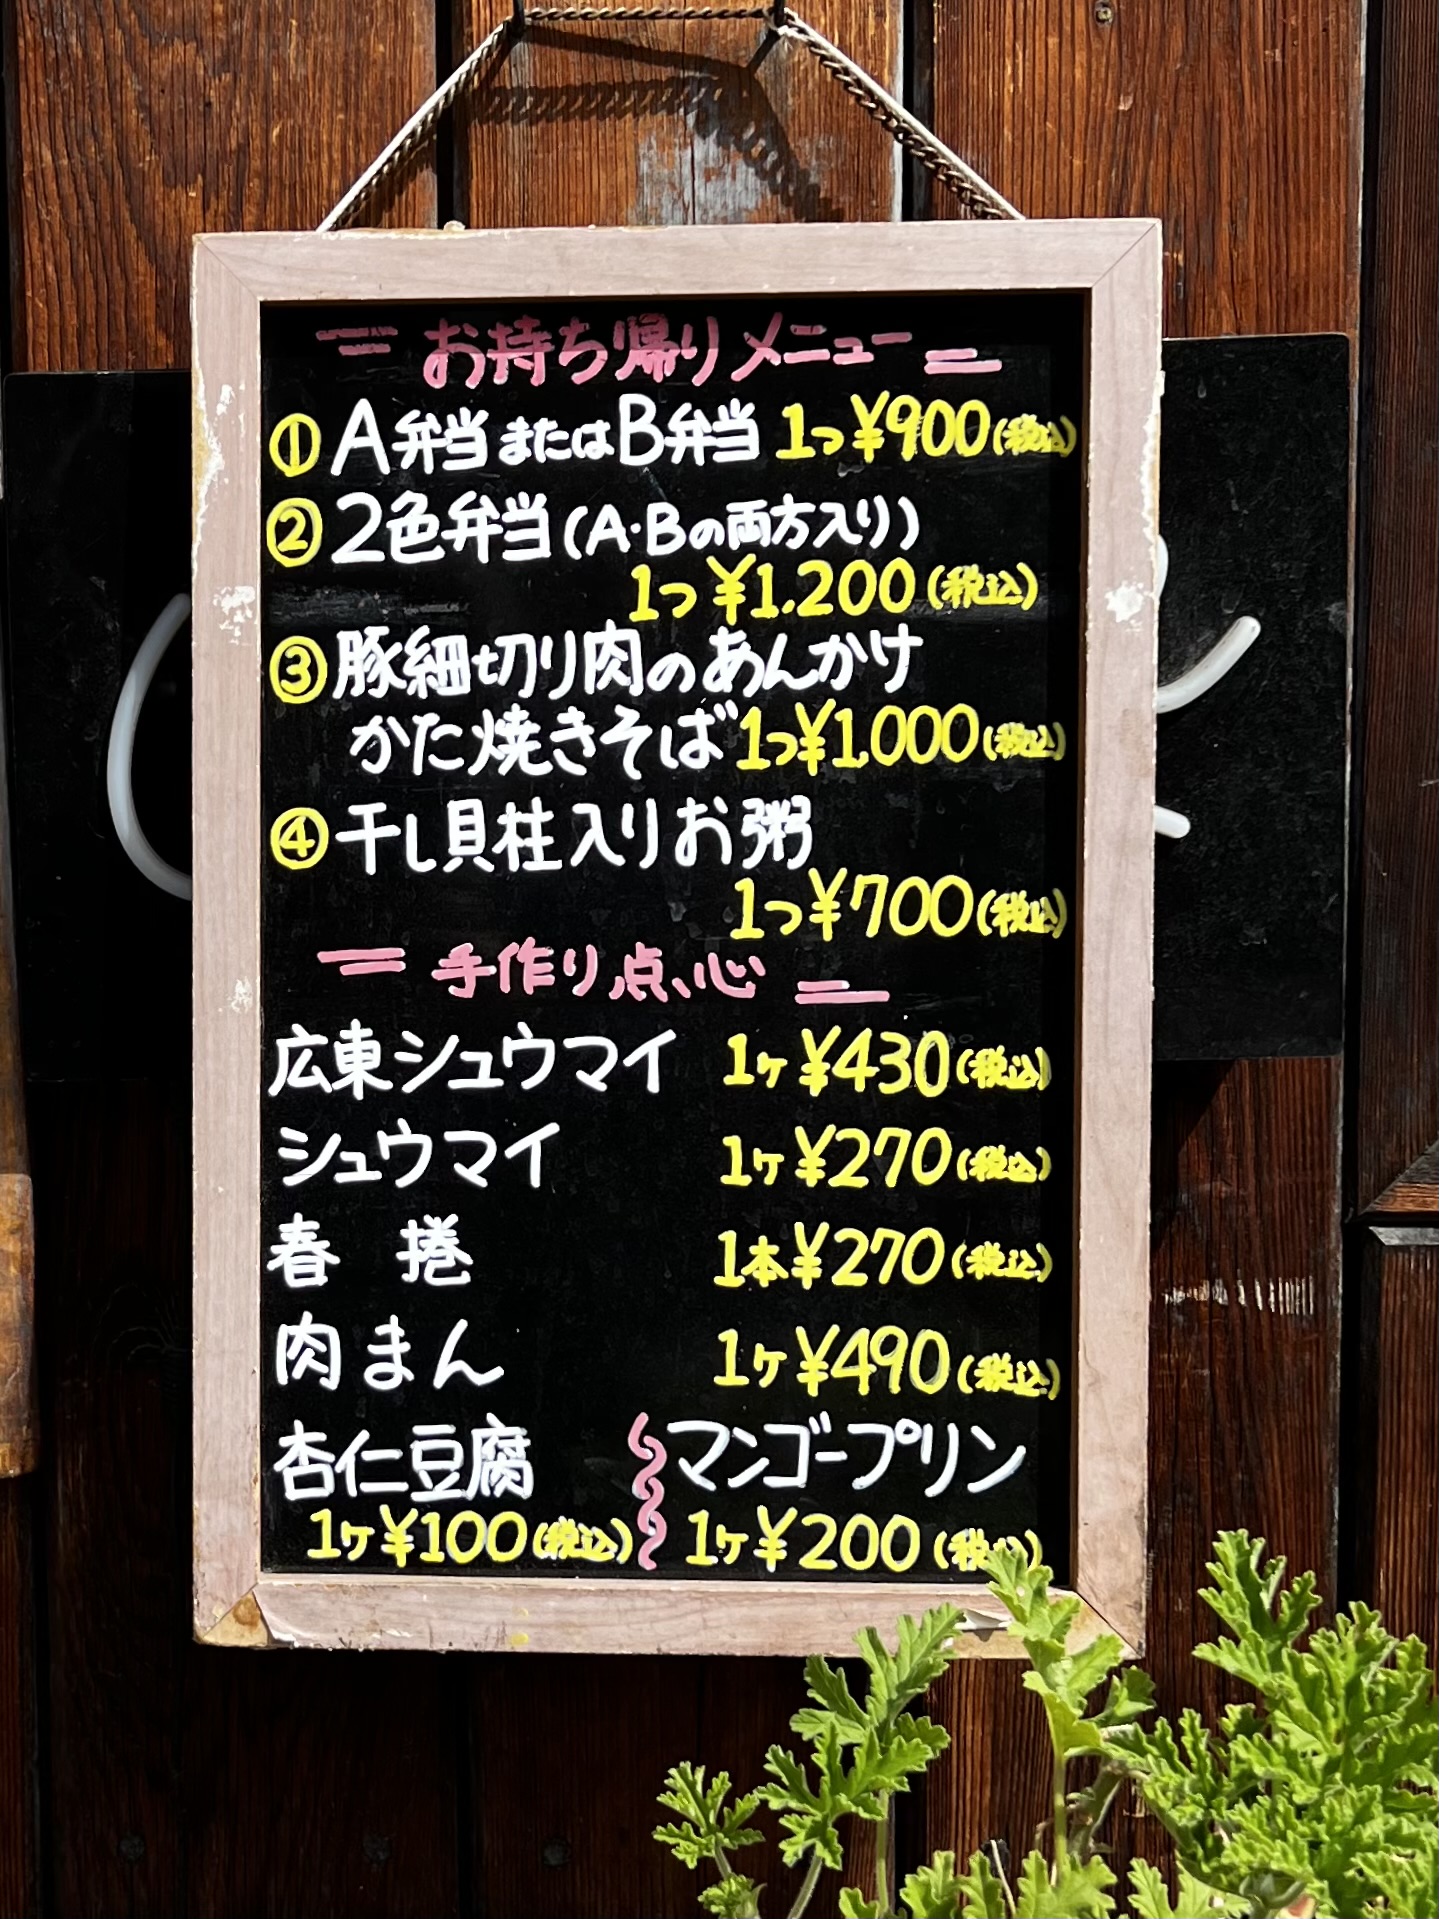 お持ち帰りメニュー
① A弁当またはB弁当 1つ¥900(税込)
② 2色弁当(A・Bの両方入り)
1つ¥1.200(税込)
③ 豚細切り肉のあんかけ
かた焼きそば 1つ¥1,000(税込)
④ 干し貝柱入りお粥
1つ¥700(税込)
手作り点心
広東シュウマイ 1ヶ¥430(税込)
シュウマイ 1ヶ¥270(税込)
春捲 1本¥270(税込)
肉まん 1ヶ¥490(税込)
杏仁豆腐 マンゴープリン
1ヶ¥100(税込) 1ヶ¥200(税込)